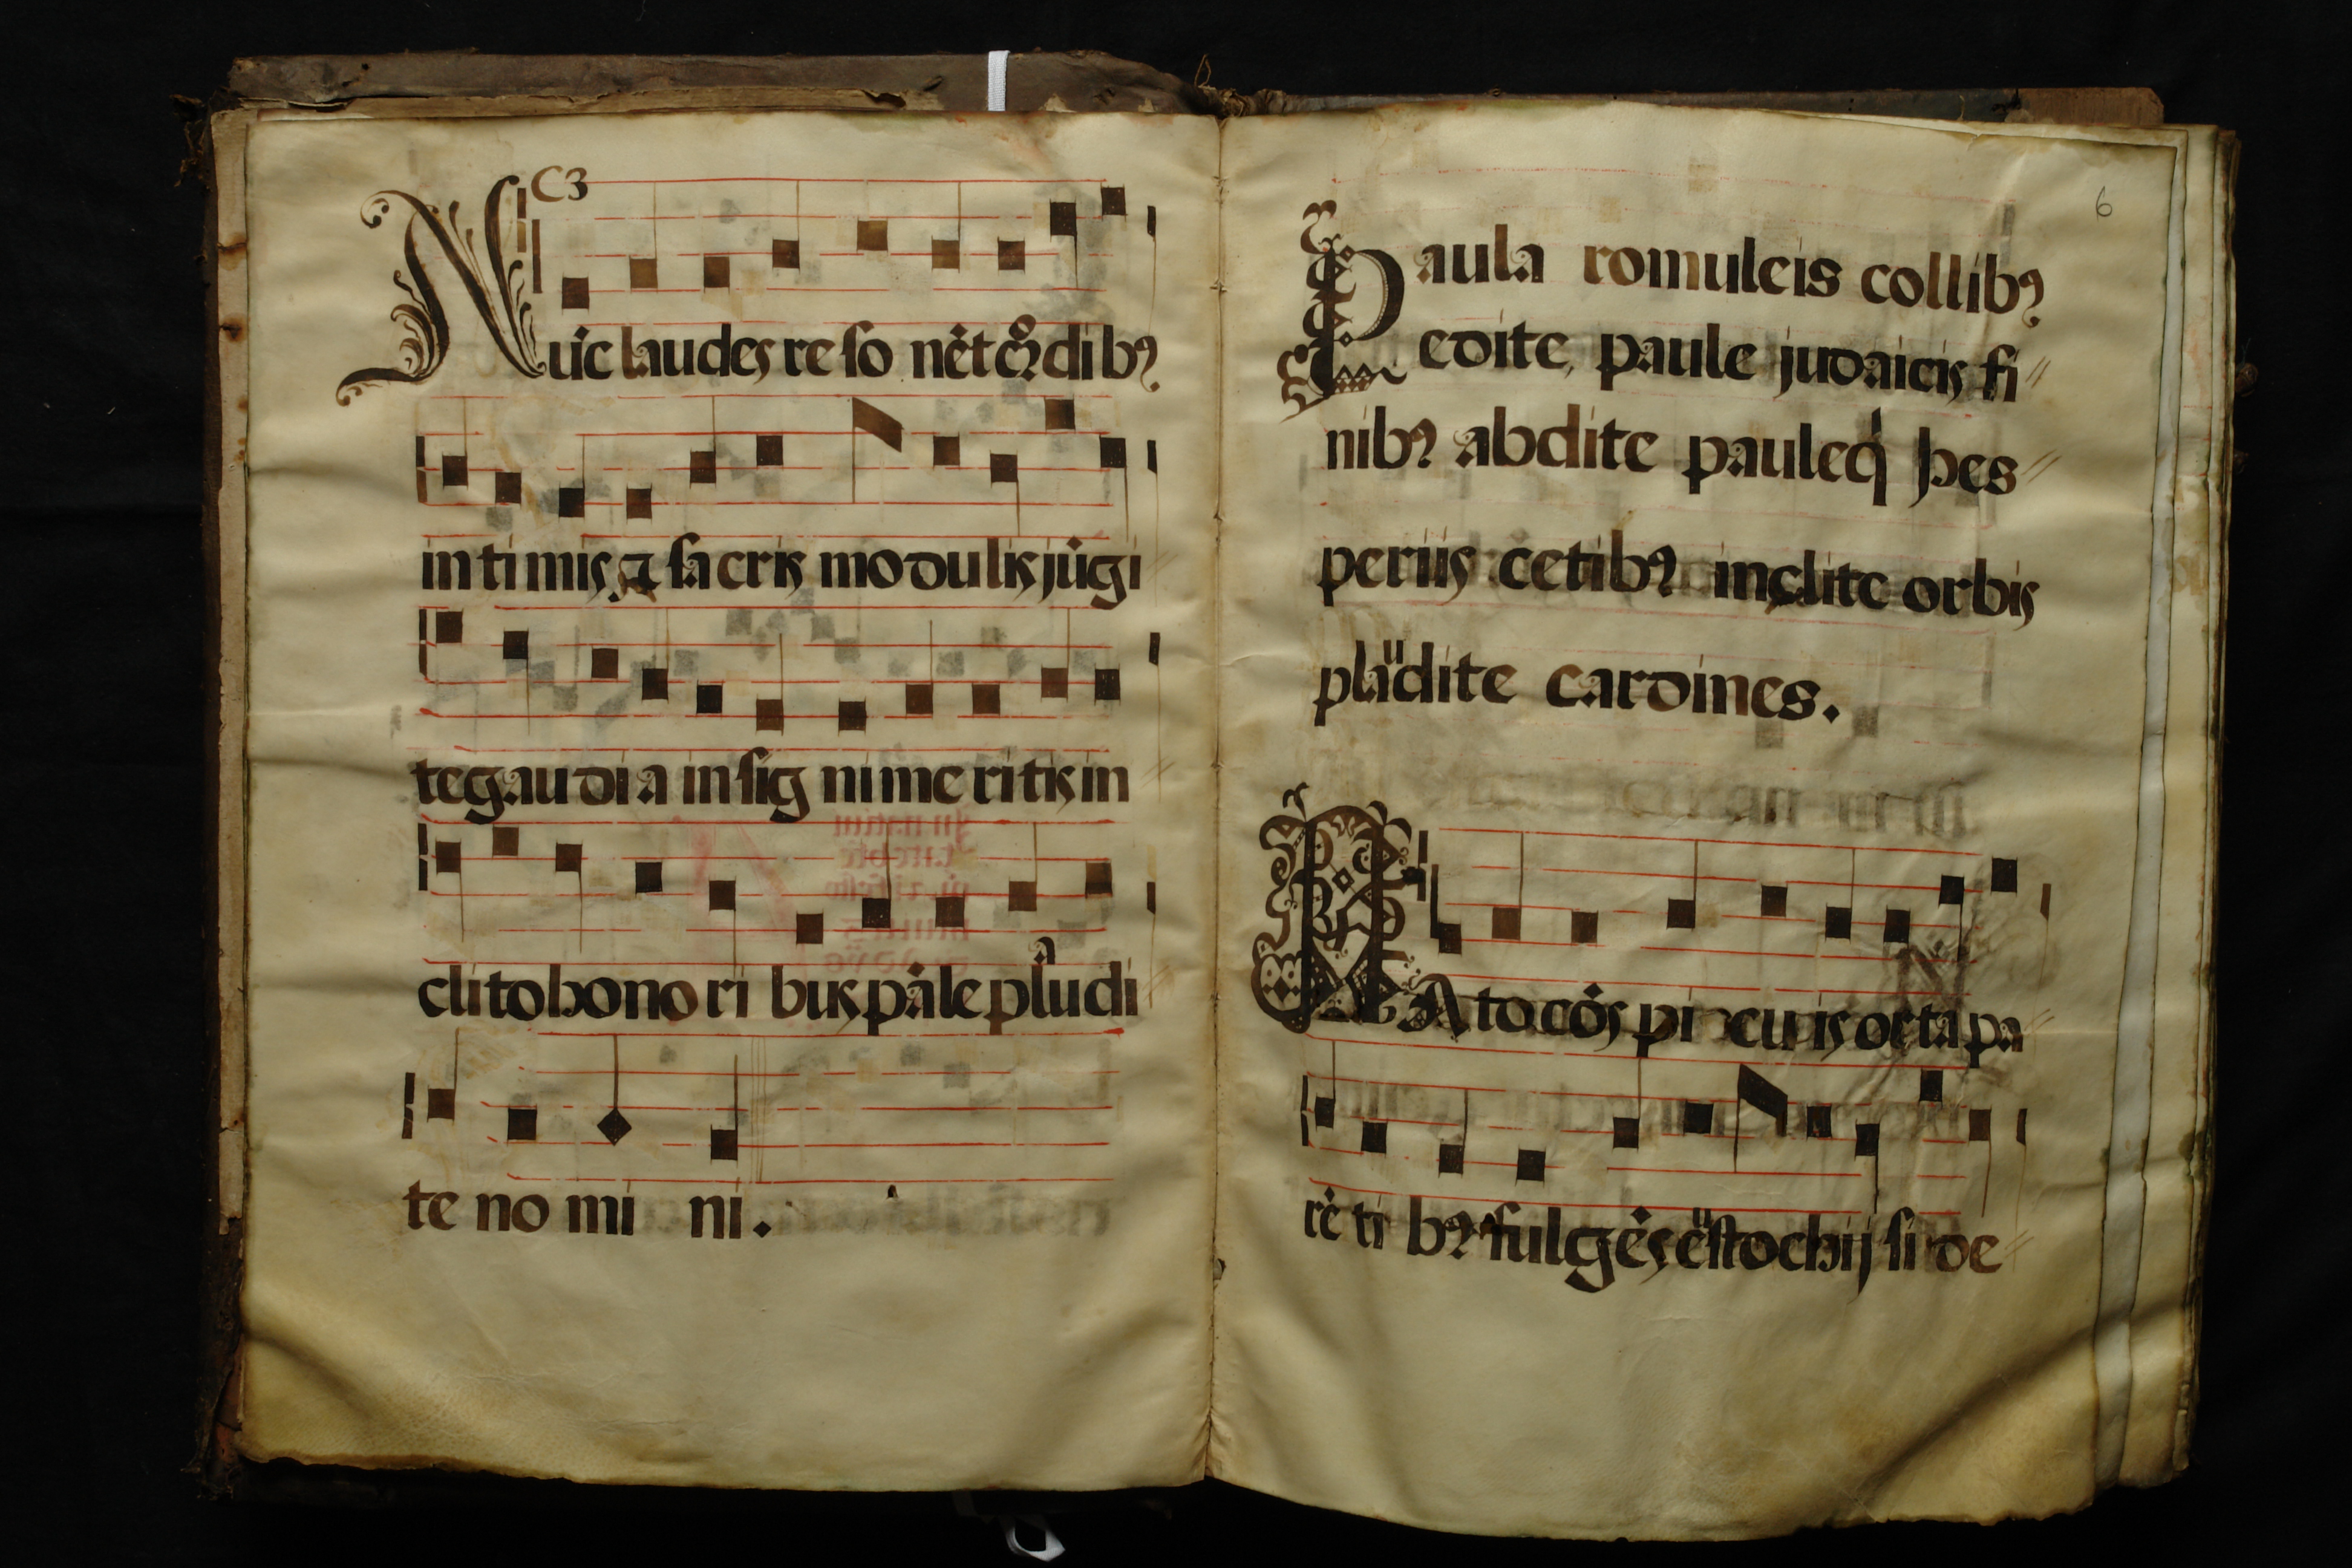 C3
Nūc laudes re so nēt cōrdi bꝰ
in ti mis ⁊ sa cris mo du lis jūgi
te gau di a in sig ni me ri tis in
cli to ho no ri bus pāle plau di
te no mi ni.
6
Paula romuleis collibꝰ
edite, paule judaicis fi//
nibꝰ abdite pauleq̄ hes//
periis cetibꝰ inclite orbis
plaudite cardines.
to cōs pi cu is orta pa//
rē ti bꝰ fulgēs ēustochij si de//